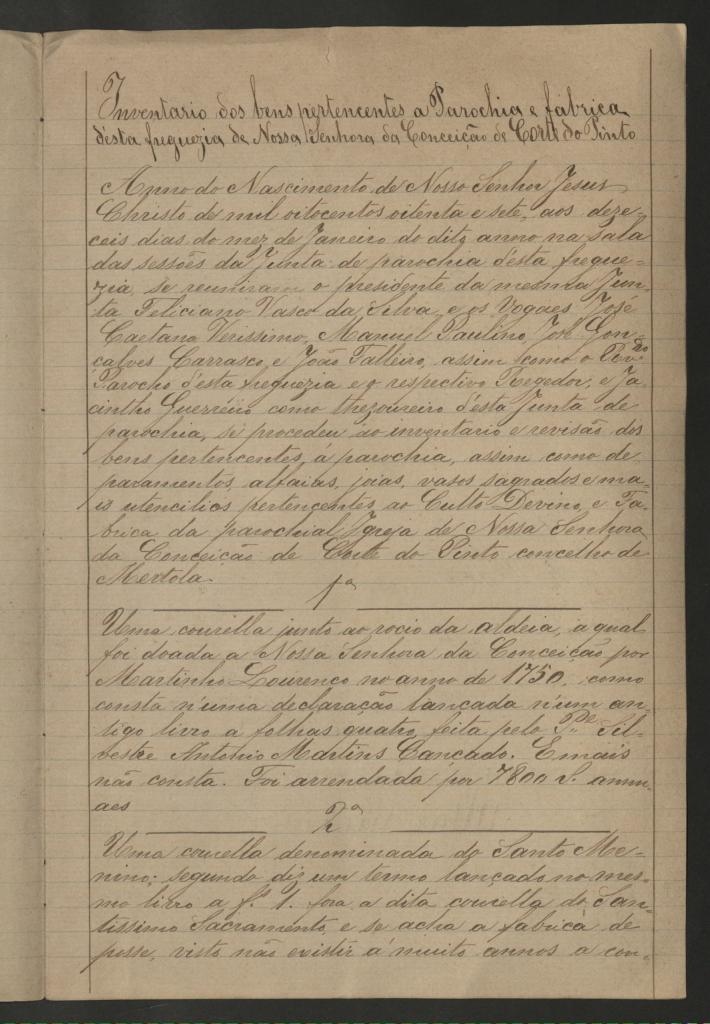 Inventario dos bens pertencentes a Parochia e fabrica
d'esta freguezia de Nossa Senhora da Conceição de Corte do Pinto
Anno do Nascimento de Nosso Senhor Jesus
Christo de mil oitocentos oitenta e sete, aos deze-
ceis dias do mez de Janeiro do dito anno na sala
das sessões da Junta de parochia d'esta fregue-
zia, se reuniram o presidente da mesma Jun-
ta Feliciano Vasco da Silva, e os Vogaes José
Caetano Verissimo, Manuel Paulino, José Gon-
çalves Carrasco, e João Talleiro, assim como o Revdo
Parocho d'esta freguezia e o respectivo Regedor, e Ja-
cintho Guerreiro como thezoureiro d'esta Junta de
parochia, se procedeu ao inventario e revisão dos
bens pertencentes á parochia, assim como de
paramentos, alfaias, joias, vasos sagrados e ma-
is utencilios pertencentes ao Culto Devino, e Fa-
brica da parochial Igreja de Nossa Senhora
da Conceição de Corte do Pinto concelho de
Mertola.
1ª
Uma courella junto ao rocio da aldeia, a qual
foi doada a Nossa Senhora da Conceição por
Martinho Lourenço no anno de 1750, como
consta n'uma declaração lançada n'um an-
tigo livro a folhas quatro, feita pelo Pe Sil-
vestre Antonio Martins Cançado. E mais
não consta. Foi arrendada por 7800 rs. annu-
aes
2ª
Uma courella denominada do Santo Me-
nino; segundo diz um termo lançado no mes-
mo livro a fs 1. fora a dita courella do San-
tissimo Sacramento, e se acha a fabrica de
posse, visto não existir á muito annos a con-